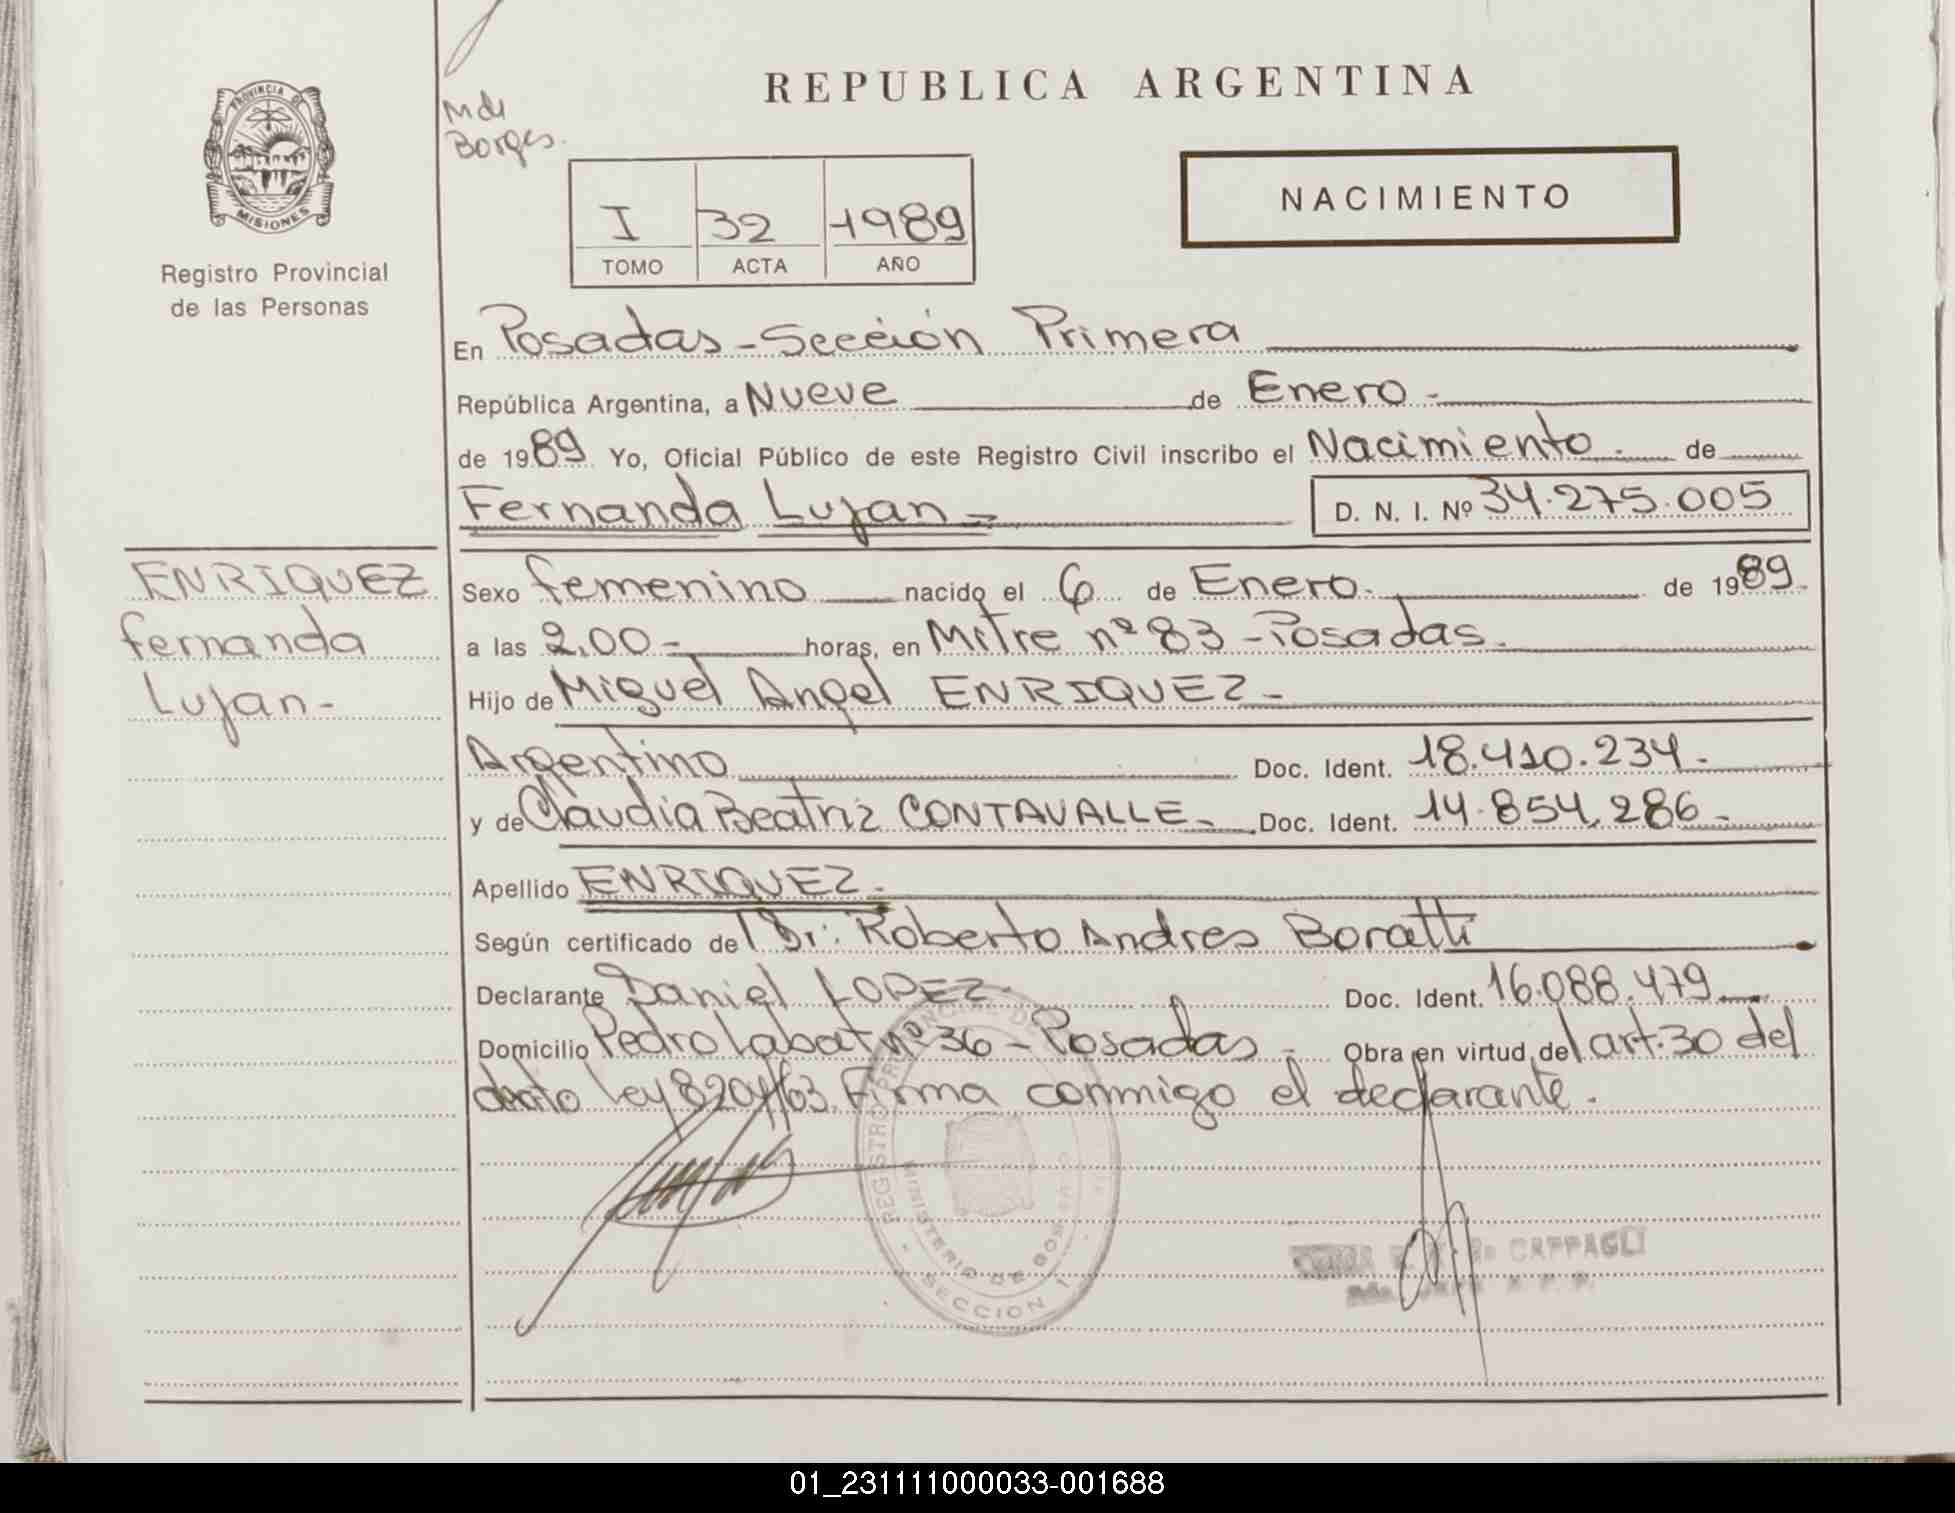 REPUBLICA ARGENTINA
PROVINCIA DE
MISIONES
Registro Provincial
de las Personas
Borges.
I 32 1989
TOMO ACTA AÑO
NACIMIENTO
En Posadas - Sección Primera
República Argentina, a Nueve de Enero -
de 1989 Yo, Oficial Público de este Registro Civil inscribo el Nacimiento. de
Fernanda Lujan = D. N. I. Nº 34.275.005
ENRIQUEZ
Fernanda
Lujan -
Sexo femenino nacido el 6 de Enero. de 1989.
a las 2,00 - horas, en Mitre nº 83 - Posadas.
Hijo de Miguel Angel ENRIQUEZ -
Argentino Doc. Ident. 18.410.234.
y de Claudia Beatriz CONTAVALLE - Doc. Ident. 14.854.286 -
Apellido ENRIQUEZ.
Según certificado del Dr: Roberto Andres Boratti
Declarante Daniel LOPEZ. Doc. Ident. 16.088.479
Domicilio Pedro Labat nº 36 - Posadas - Obra en virtud del art. 30 del
ley 8204/63. Firma conmigo el declarante.
REGISTRO
MINISTERIO DE
SECCION 1
CAPPAGLI
01_231111000033-001688